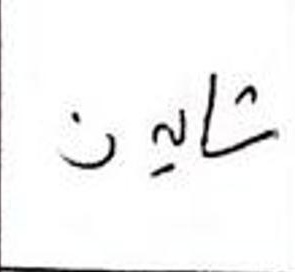 شایون